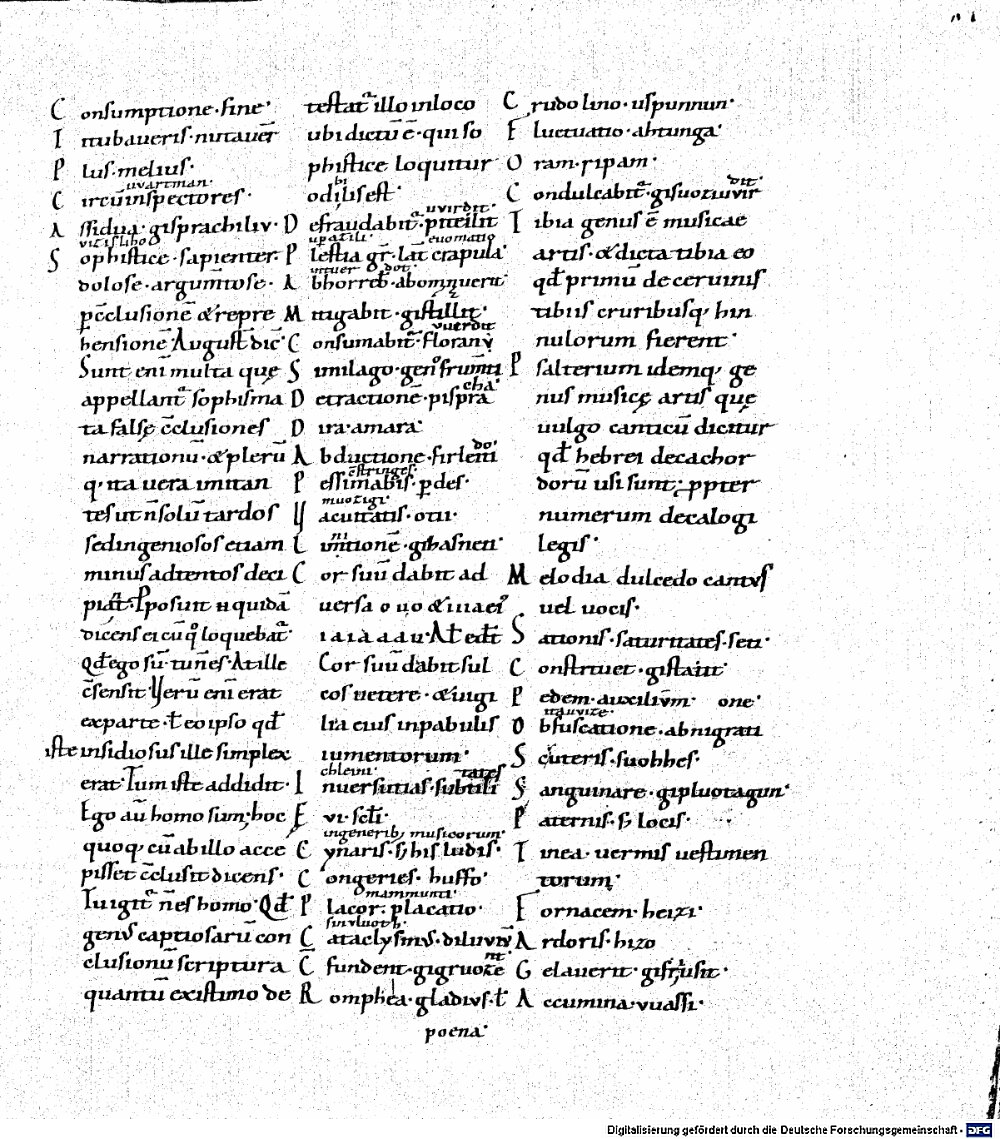 Consumptione· fine·
Titubaueris· nutauer̄
Plus· melius·
uuartman·
Circūinspectores·
Assidua· gisprachiliv·
uitislibo
Sophistice· sapienter·
dolose· argum̄tose·
p c̄clusionē & repre
hensionē August̄ dic̄
Sunt enī multa quę
appellant᷑ sophisma
ta falsę c̄clusiones
narrationū· & plerū
q· ita uera imitan
tes ut ñ solū tardos
sed ingeniosos etiam
minus adtentos deci
dicens ei cū q loquebat᷑
Qd̄ ego sū tu ñ es· At ille
c̄sensit Verū enī erat
ex parte· t̄ eo ipso qd̄
iste insidiosus ille simplex
erat· Tum iste addidit·
Ego aū homo sum; hoc
quoq· cū ab illo acce
pisset c̄clusit dicens·
Tu igit᷑ ñ es homo· Qd̄
genus captiosarū con
clusionū scriptura
quantū existimo de
testat᷑ illo in loco
ubi dictū ē· qui so
phistice loquitur
bi
odilis est·
uvirdit·
Defraudabit᷑· piteilit
upatili· euomatio
Plestia gr̄· lat̄ crapula·
Abhorreb· abominuerit·
Mitigabit· gistillit·
vuerdit
Consumabit᷑· florany
Similago· gen frum̄ti
cha·
Detractionē· pispra
Dira· amara·
do·
Abductione· firleiti
c̄stringes·
Pessimabis· p̄des·
muozigi·
Vacuitatis· otii·
ni
Cor suū dabit ad
uersa o uo &
Cor suū dabit sul
cos uertere· & uigi
lia eius in pabulis
iumentorum·
chleini· tates
Inuersutias· subtili
Eui· scl̄i·
in generib; musicorum·
Cynaris· s̄ his ludis·
Congeries· huffo·
mammunti·
Placor· placatio·
sinvluoth·
Cataclysmus· diluviū
nt
C̄fundent· gigruoze
Romphea· gladius· t̄
poena·
Crudo lino· uspunnun·
Fluctuatio· ahtunga·
Oram· ripam·
dit·
Condulcabit᷑· gisuoziuvir
Tibia genus ē musicae
artis· & dicta tibia eo
qd̄ primū de ceruinis
tibiis cruribusq; hin
nulorum fierent·
Psalterium idemq; ge
nus musicę artis quę
uulgo canticū dicitur
qd̄ hebrei decachor
dorū usi sunt; ppter
numerum decalogi
legis·
Melodia dulcedo cantus
uel uocis·
Sationis· saturitates· seti·
Construet· gistatit·
Pedem· auxilium· one·
Obfuscatione· abnigrati
Scuteris· suohhes·
Sanguinare· gipluotagun·
Paternis· s̄ locis·
Tinea· uermis uestimen
torum;
Fornacem· heizi·
Ardoris· hizo
Gelauerit· gifrusit·
Accumina· vuassi·
Digitalisierung gefördert durch die Deutsche Forschungsgemeinschaft - DFG